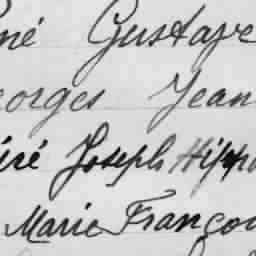 né Gustave
eorges Jean
éré Joseph Hippo
Marie Françoi